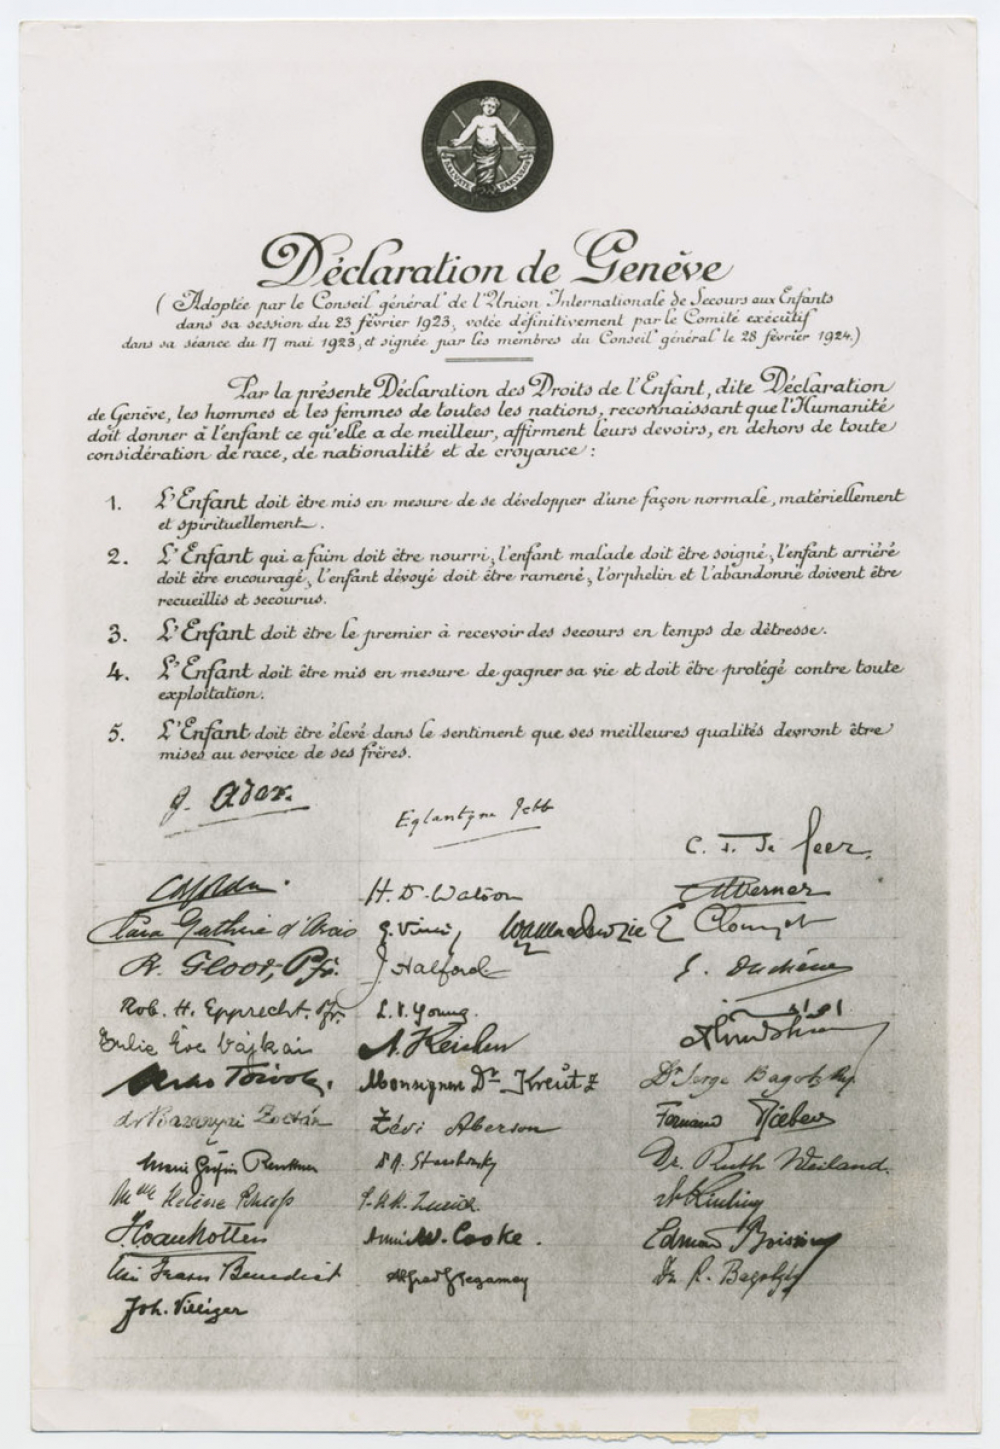 SALVATE PARVULOS
Déclaration de Genève
(Adoptée par le Conseil général de l'Union Internationale de Secours aux Enfants
dans sa session du 23 février 1923, votée définitivement par le Comité exécutif
dans sa séance du 17 mai 1923, et signée par les membres du Conseil général le 28 février 1924.)
Par la présente Déclaration des Droits de l'Enfant, dite Déclaration
de Genève, les hommes et les femmes de toutes les nations, reconnaissant que l'Humanité
doit donner à l'enfant ce qu'elle a de meilleur, affirment leurs devoirs, en dehors de toute
considération de race, de nationalité et de croyance :
1. L'Enfant doit être mis en mesure de se développer d'une façon normale, matériellement
et spirituellement.
2. L'Enfant qui a faim doit être nourri, l'enfant malade doit être soigné, l'enfant arriéré
doit être encouragé, l'enfant dévoyé doit être ramené, l'orphelin et l'abandonné doivent être
recueillis et secourus.
3. L'Enfant doit être le premier à recevoir des secours en temps de détresse.
4. L'Enfant doit être mis en mesure de gagner sa vie et doit être protégé contre toute
exploitation.
5. L'Enfant doit être élevé dans le sentiment que ses meilleures qualités devront être
mises au service de ses frères.
G. Ador.
Eglantyne Jebb
C. T. Te Geer.
H. D. Watson
Werner
Clara Guthrie d'Arcis
E Clouzot
R. Gloor, Pfr.
J Halford
Rob. H. Epprecht. Pfr.
L. V. Young.
Julie Eve Vajkai
Monsignore Dr. Kreutz
Dr Serge Bagotzky
Zévi Aberson
Dr. Ruth Weiland.
Mlle Hélène
W. Cooke.
Benedict
Joh. Villiger